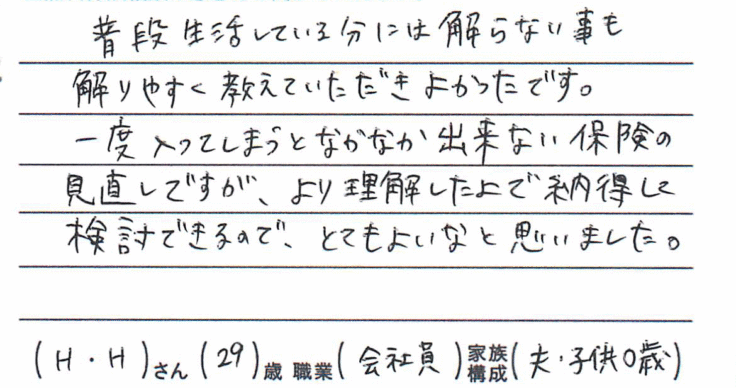 普段生活している分には解らない事も
解りやすく教えていただきよかったです。
一度入ってしまうとなかなか出来ない保険の
見直しですが、より理解した上で納得して
検討できるので、とてもよいなと思いました。
(H・H)さん(29)歳 職業(会社員)家族構成(夫・子供0歳)